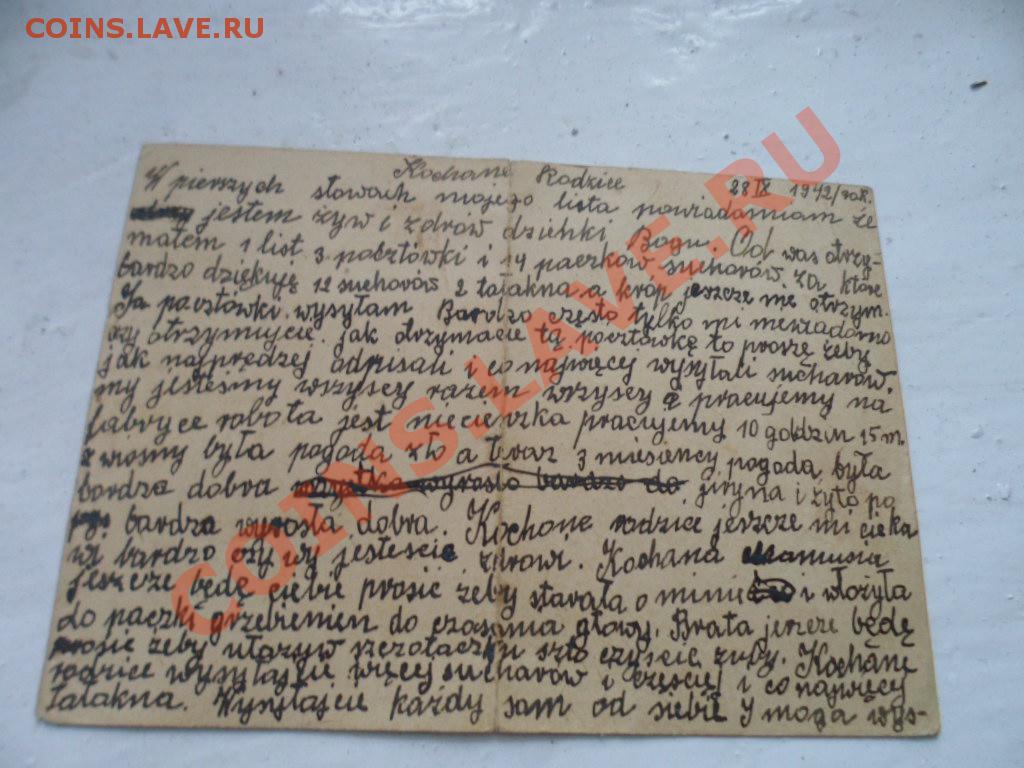 COINS.LAVE.RU
Kochane Rodzice 28 IX 1942/rok.
W pierszych słowach mojego lista powiadamiam że
jestem żyw i zdrów dzienki Bogu. Od was otrzy-
małem 1 list 3 pocztówki i 14 paczków sucharów za które
bardzo dziękuję 12 sucharów 2 tałakna a króp jeszcze nie otrzym.
Ja pocztówki wysyłam Bardzo często tylko mi niewiadomo
czy otrzymujecie. jak otrzymacie tą pocztówkę to proszę żeby
jak najprędzej odpisali i co najwięcej wysyłali sucharów.
my jesteśmy wrzyscy razem wrzyscy pracujemy na
fabryce robota jest niecienżka pracujemy 10 godzin 15 m.
z wiosny była pogoda zło a teraz 3 miesiency pogoda była
bardza dobra wszystko wyrosło bardzo do jiryna i żyto po
bardza wyrosła dobra. Kochane rodzice jeszcze mi cieka
wi bardzo czy wy jesteście zdrowi. Kochana Mamusia
jeszcze będę ciebie prosić żeby starała o minie i włożyła
do paczki grzebieniem do czasania głowy. Brata jeszcze będę
prosić żeby szczotaczku szto czyscić zuby. Kochane
rodzice wysyłajcie więcej sucharów i częściej i co najwięcej
tałakna. Wysyłajcie każdy sam od siebie y moga
COINS.LAVE.RU